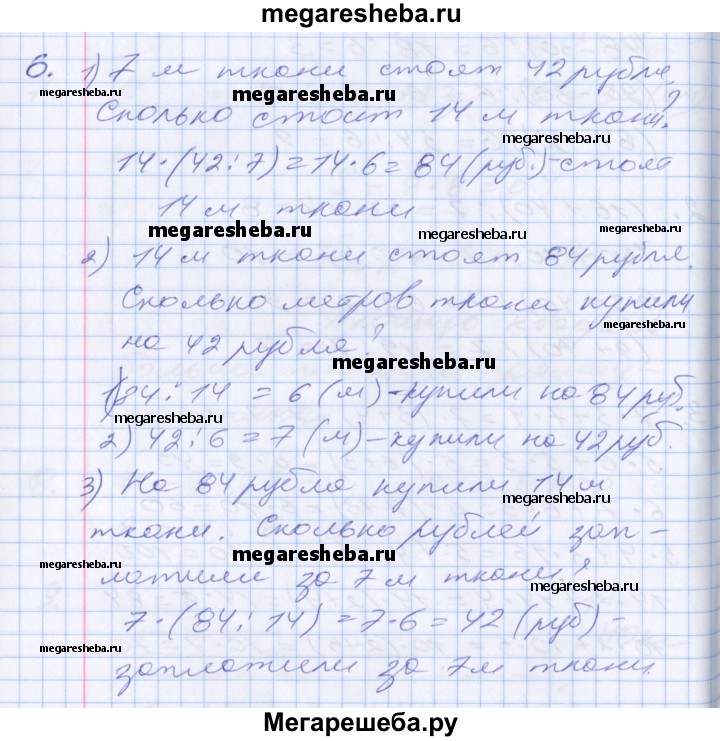 megaresheba.ru
6. 1) 7 м ткани стоят 42 рубля.
megaresheba.ru megaresheba.ru
Сколько стоит 14 м ткани?
megaresheba.ru
14·(42:7)=14·6=84(руб.)-стоят
14 м ткани
megaresheba.ru megaresheba.ru
2) 14 м ткани стоят 84 рубля.
Сколько метров ткани купили
megaresheba.ru
на 42 рубля?
megaresheba.ru
1)84:14 = 6 (м)-купили на 84 руб.
megaresheba.ru megaresheba.ru
2) 42:6=7 (м)-купили на 42 руб.
3) На 84 рубля купили 14 м
megaresheba.ru
ткани. Сколько рублей зап-
megaresheba.ru
латили за 7 м ткани?
megaresheba.ru
7·(84:14)=7·6=42 (руб)-
megaresheba.ru megaresheba.ru
заплатили за 7м ткани.
Мегарешеба.ру